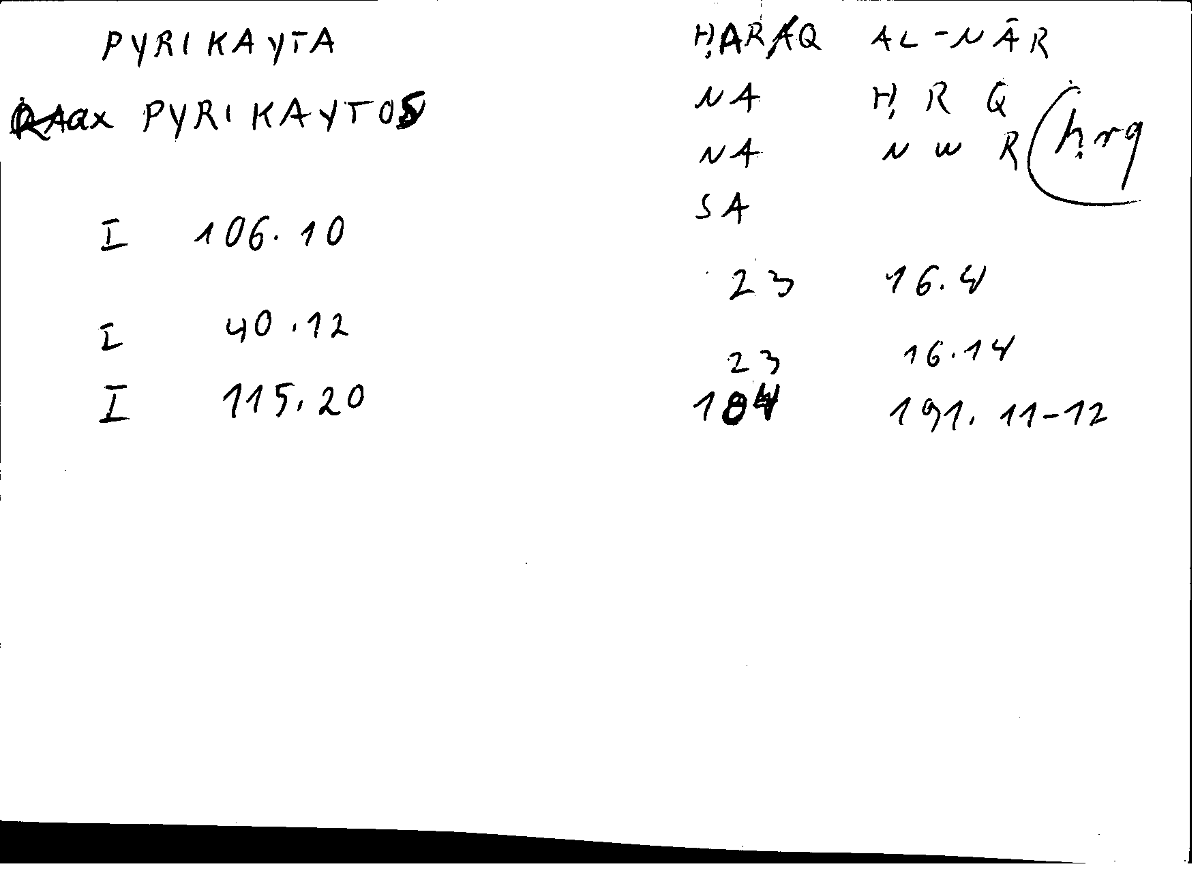 PYRIKAYTA ḤARAQ AL-NĀR
ax PYRIKAYTOS NA Ḥ R Q
NA N W R ḥrq
SA
I 106.10
23 16.4
I 40.12
23 16.14
I 115.20 104 191.11-12